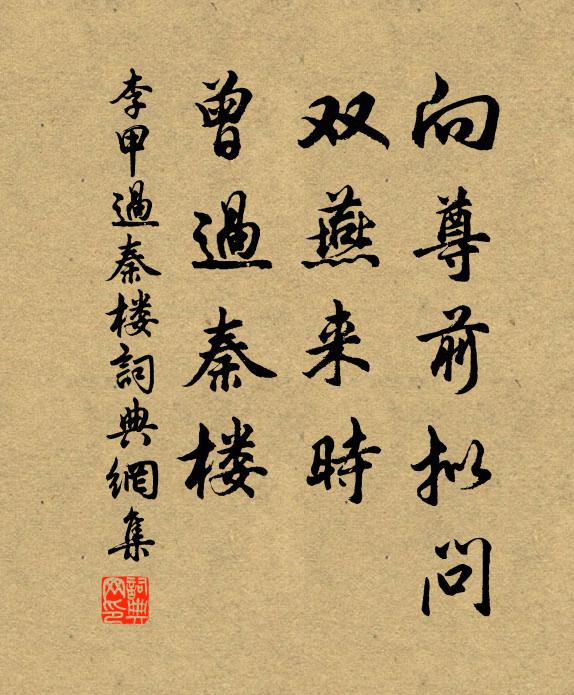 向尊前拟问
双燕来時
曾過秦楼
李甲過秦楼詞典網集
詞典网印